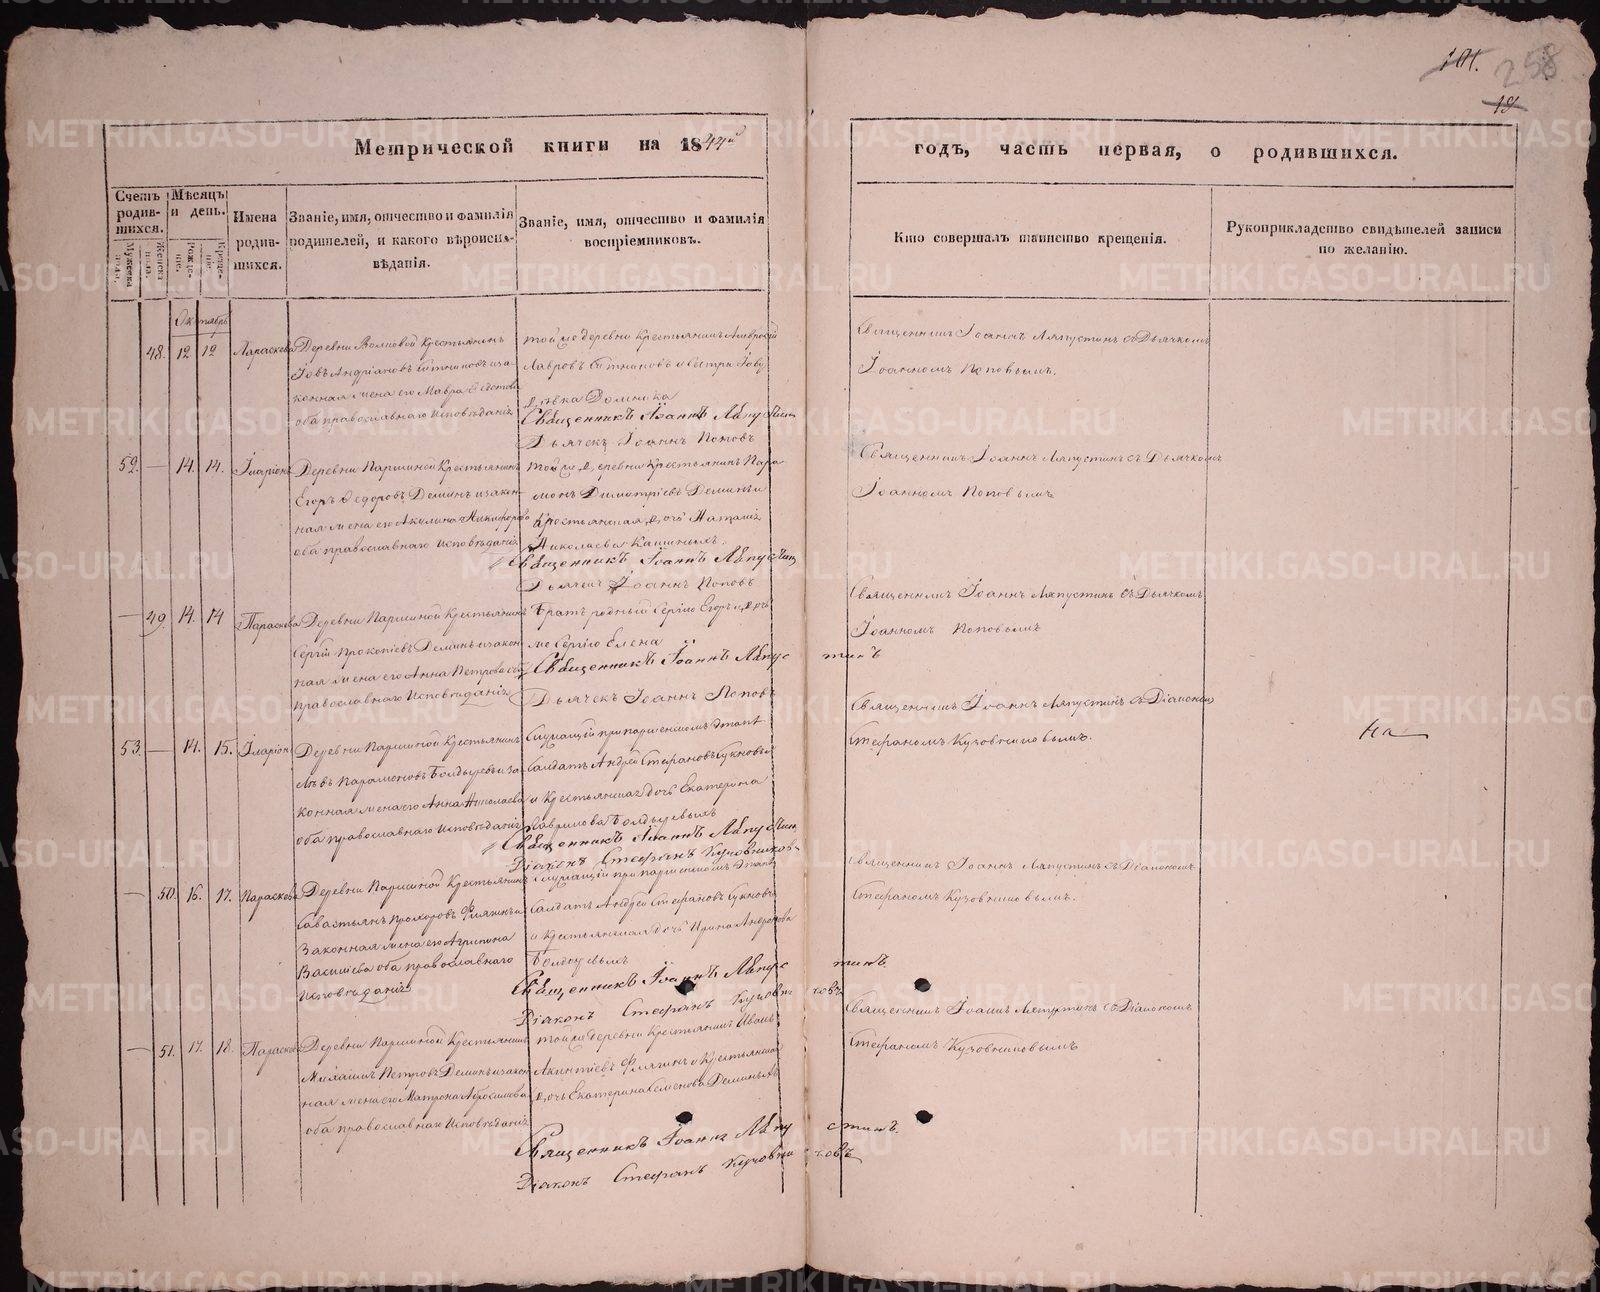 101.
258
18
Метрической книги на 1844й
годъ, часть первая, о родившихся.
Счетъ родив-шихся.
Мужеска пола.
Женска пола.
Мѣсяцъ и день.
Рожде-ніе.
Креще-ніе.
Имена родив-шихся.
Званіе, имя, отчество и фамилія родителей, и какого вѣроиспо-вѣданія.
Званіе, имя, отчество и фамилія воспріемниковъ.
Кто совершалъ таинство крещенія.
Рукоприкладство свидѣтелей записи по желанію.
Октябрь
48. 12 12 Параскева
Деревни Крестьянинъ
Іовъ Андріановъ Ситниковъ и за
конная жена его Мавра
оба православнаго исповѣданія
той же деревни Крестьянинъ Амвросій
Лавровъ Ситниковъ и сестра Іову
дѣвка Домника
Священникъ Іоаннъ Ляпустинъ
Дьячекъ Іоаннъ Поповъ
Священникъ Іоаннъ Ляпустинъ съ Дьячкомъ
Іоанномъ Поповымъ.
52. — 14. 14. Иларіонъ
Деревни Паршиной Крестьянинъ
Егоръ Федоровъ Деминъ и закон
ная жена его Акилина Никифорова
оба православнаго исповѣданія
той же деревни Крестьянинъ Пара
монъ Димитріевъ Деминъ и
Крестьянская дочь Наталія
Николаева
Священникъ Іоаннъ Ляпустинъ
Дьячекъ Іоаннъ Поповъ
Священникъ Іоаннъ Ляпустинъ съ Дьячкомъ
Іоанномъ Поповымъ
— 49. 14. 14 Параскева
Деревни Паршиной Крестьянинъ
Сергій Прокопіевъ Деминъ и закон
ная жена его Анна Петрова оба
православнаго исповѣданія
Братъ родный Сергію Егоръ и дочь
же Сергію Елена
Священникъ Іоаннъ Ляпустинъ
Дьячекъ Іоаннъ Поповъ
Священникъ Іоаннъ Ляпустинъ съ Дьячкомъ
Іоанномъ Поповымъ
53. — 14. 15. Иларіонъ
Деревни Паршиной Крестьянинъ
Левъ Парамоновъ Болдыревъ и за
конная жена его Анна Николаева
оба православнаго исповѣданія
Служащій при паршинскомъ этапѣ
Солдатъ Андрей Стефановъ Сукновъ
и Крестьянская дочь Екатерина
Гаврилова Болдыревыхъ
Священникъ Іоаннъ Ляпустинъ
Діаконъ Стефанъ Кузовниковъ
Священникъ Іоаннъ Ляпустинъ съ Діакономъ
Стефаномъ Кузовниковымъ.
на
— 50. 16. 17. Параскева
Деревни Паршиной Крестьянинъ
Савастьянъ Прохоровъ Филякинъ и
Законная жена его Агрипина
Васильева оба православнаго
исповѣданія
Служащій при паршинскомъ этапѣ
Солдатъ Андрей Стефановъ Сукновъ
и Крестьянская дочь Ирина Андронова
Священникъ Іоаннъ Ляпустинъ.
Діаконъ Стефанъ Кузовниковъ
Священникъ Іоаннъ Ляпустинъ съ Діакономъ
Стефаномъ Кузовниковымъ.
— 51. 17. 18. Параскева
Деревни Паршиной Крестьянинъ
Михаилъ Петровъ Деминъ и закон
ная жена его Матрона Абросимова
оба православнаго исповѣданія
той же деревни Крестьянинъ Иванъ
и Крестьянская
дочь Екатерина Семенова Деминыхъ
Священникъ Іоаннъ Ляпустинъ.
Діаконъ Стефанъ Кузовниковъ
Священникъ Іоаннъ Ляпустинъ съ Діакономъ
Стефаномъ Кузовниковымъ
METRIKI.GASO-URAL.RU